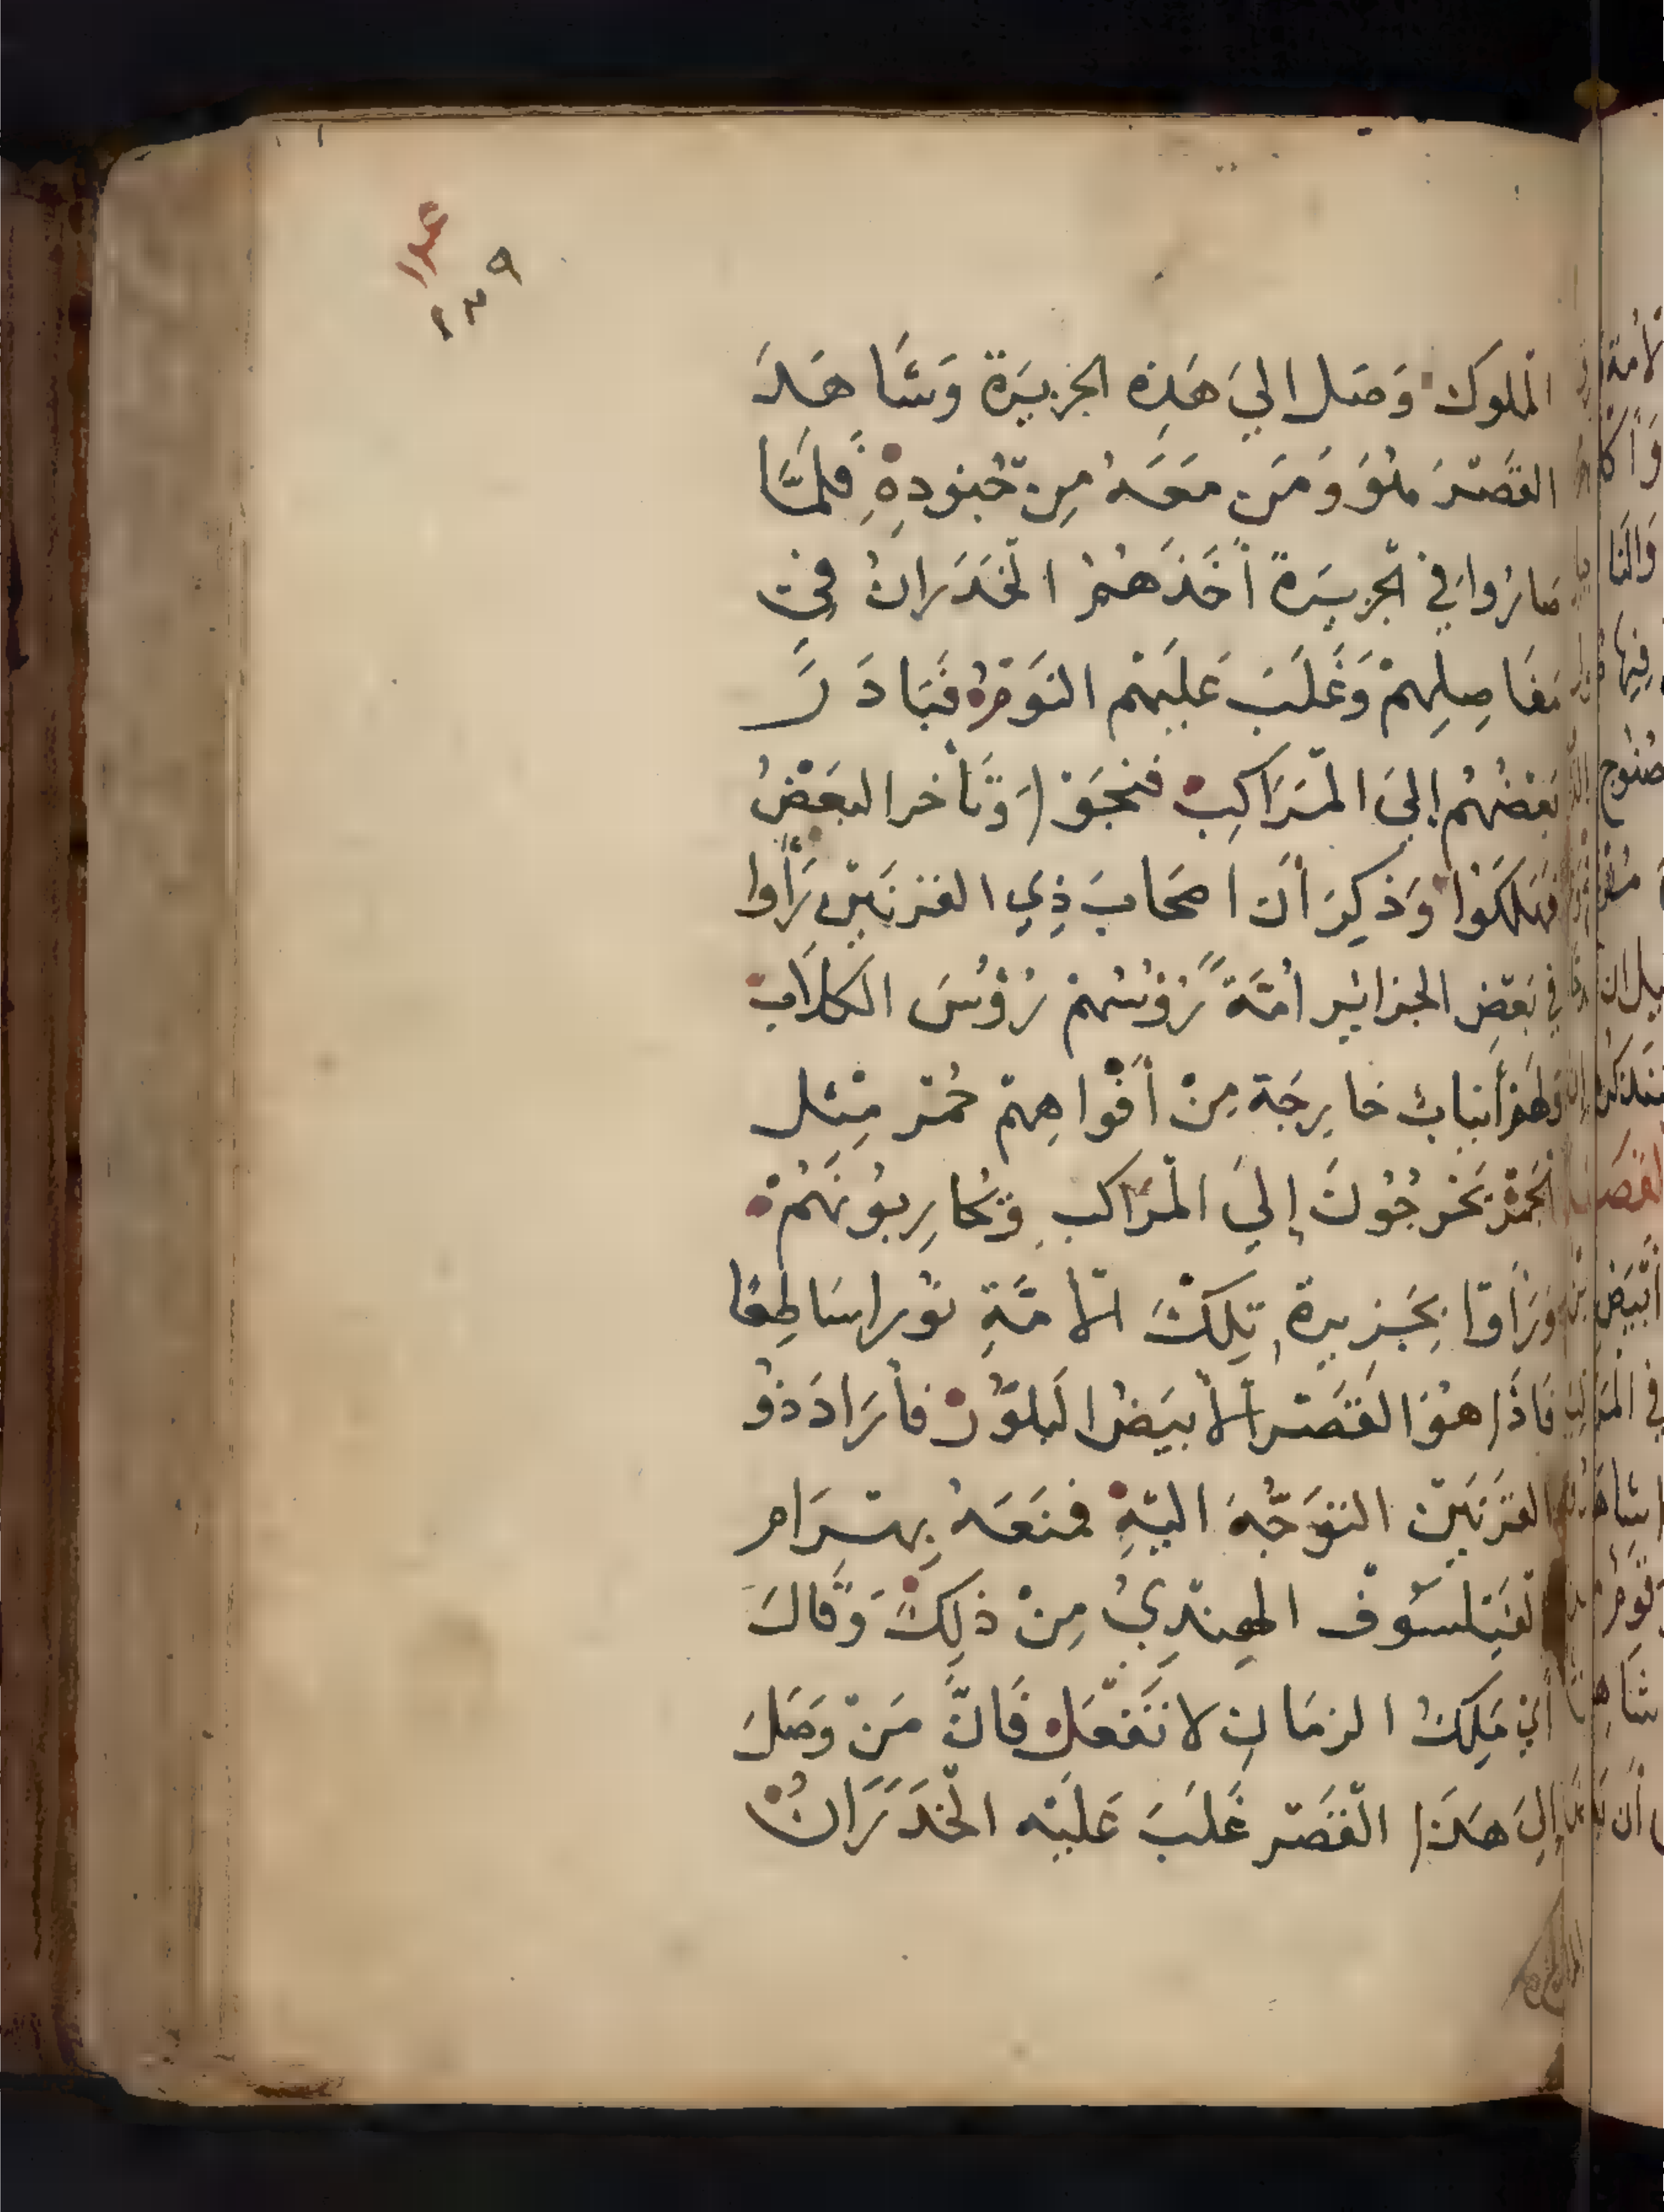 ٢٣٩
الْملوكَ وَصَل اليَ هَذِه الجزيَرةَ وَشَاهَدَ
القَصْرَ هُوَ وَمَن مَعَهُ مِن جُنودِهِ فَلمَّا
صارُوا في الْجزيَرةَ أخَذَهُمُ الْخَدَرانُ في
مَفَاصِلِهمْ وَغَلَبَ عَليَهْم النَوْمُ فَبَادَرَ
بَعْضُهُم إليَ الْمَرَاكِبِ فنجَوْا وَتَأخر البَعْضُ
فَهَلكَوُا وَذكِرَ أن اصحَابَ ذِي القرْنَيْنِ رَأَوا
في بَعْضِ الجزائِر امُّةً رُؤسُهُمْ رُؤسَ الكلاَبِ
وَلهَمُ أنيابُ خَارِجَة مِنْ أفْواهِهمْ حُمْر مِثل
الْجَمْرْ يَخرجُونَ إليَ الْمرَاكبِ وَيُحَاربوُنَهُمْ
وَرَأوْا بِجَزيرةِ تِلكَ الاُمَّةِ نُورا سَاطِعًا
فَاذَا هوُ القَصْر الأبيَضُ البلوَّرُ فأرَادَ ذوُ
القرْنَيْن التوَجُّهَ اليْهِ فمنَعَهُ بِهْرَام
الفَيْلسَوُفْ الهِنْدِيُ مِنْ ذلِكَ وَقَالَ
أيْ مَلِكَ الزمَانِ لا تَفْعَلْ فَانَّ مَنْ وَصَلَ
إليَ هَذَا الْقَصْر غَلبَ عَليْه الْخَدَرَانُ